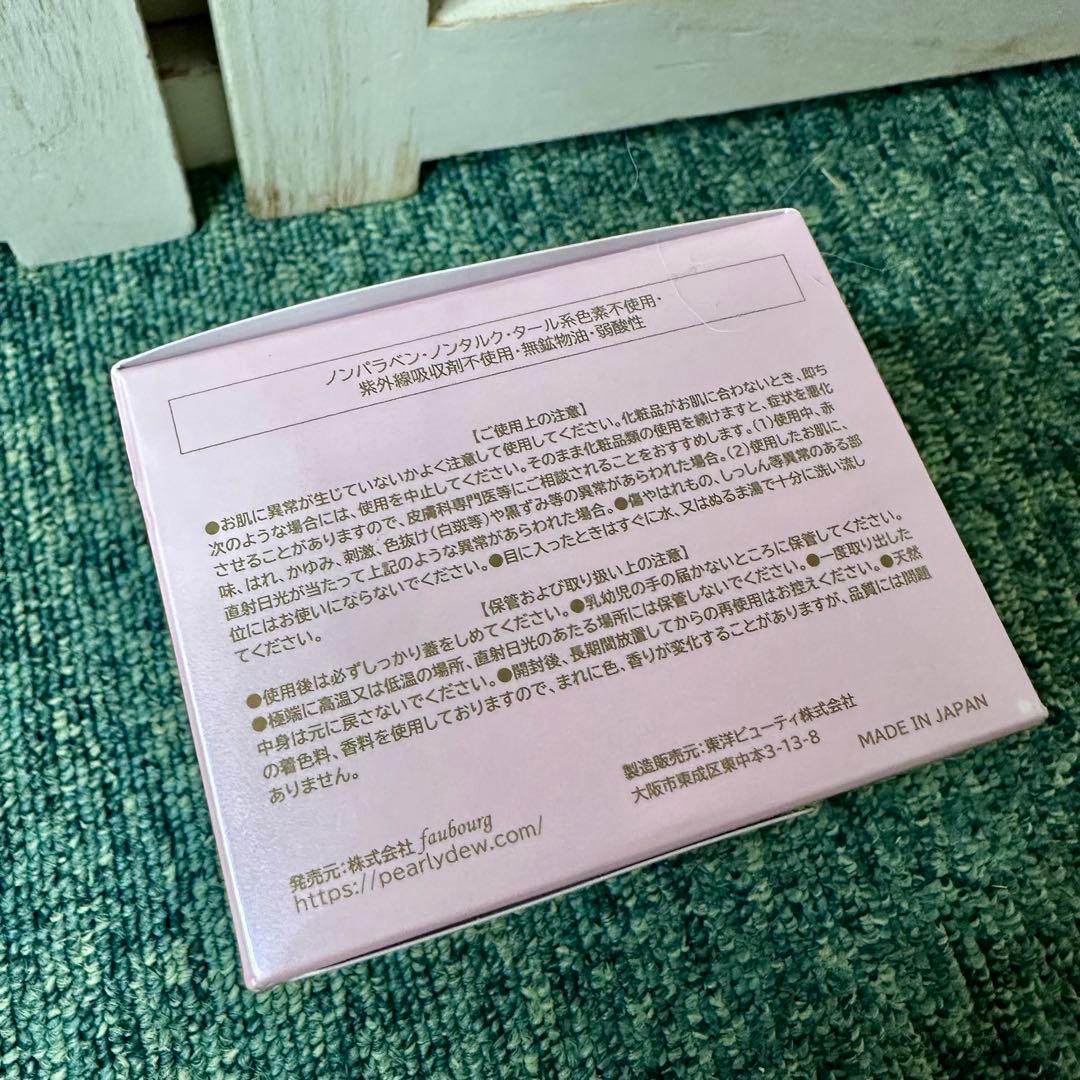 ノンパラベン・ノンタルク・タール系色素不使用・
紫外線吸収剤不使用・無鉱物油・弱酸性
【ご使用上の注意】
●お肌に異常が生じていないかよく注意して使用してください。化粧品がお肌に合わないとき、即ち
次のような場合には、使用を中止してください。そのまま化粧品類の使用を続けますと、症状を悪化
させることがありますので、皮膚科専門医等にご相談されることをおすすめします。(1)使用中、赤
味、はれ、かゆみ、刺激、色抜け(白斑等)や黒ずみ等の異常があらわれた場合。(2)使用したお肌に、
直射日光が当たって上記のような異常があらわれた場合。●傷やはれもの、しっしん等異常のある部
位にはお使いにならないでください。●目に入ったときはすぐに水、又はぬるま湯で十分に洗い流し
てください。
【保管および取り扱い上の注意】
●使用後は必ずしっかり蓋をしめてください。●乳幼児の手の届かないところに保管してください。
●極端に高温又は低温の場所、直射日光のあたる場所には保管しないでください。●一度取り出した
中身は元に戻さないでください。●開封後、長期間放置してからの再使用はお控えください。●天然
の着色料、香料を使用しておりますので、まれに色、香りが変化することがありますが、品質には問題
ありません。
製造販売元:東洋ビューティ株式会社
大阪市東成区東中本3-13-8
MADE IN JAPAN
発売元:株式会社 faubourg
https://pearlydew.com/